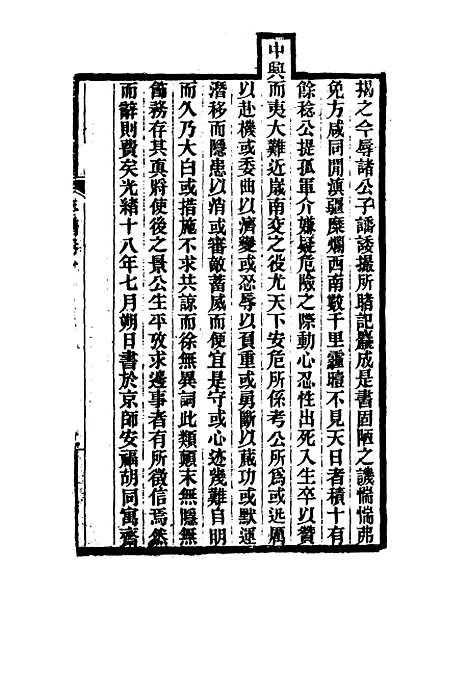 揭之今辱諸公子諈諉撮所睹記纂成是書固陋之譏惴惴弗
免方咸同閒滇疆糜爛西南數千里霾曀不見天日者積十有
餘稔公提孤軍介嫌疑危險之際動心忍性出死入生卒以贊
中興而夷大難近歲南交之役尤天下安危所係考公所爲或远屬
以赴機或委曲以濟變或忍辱以負重或勇斷以蕆功或默運
潛移而隱患以消或審敵蓄威而便宜是守或心迹幾難自明
而久乃大白或措施不求共諒而徐無異詞此類顚末無隱無
飾務存其眞將使後之景公生平攷求邊事者有所徵信焉然
而辭則費矣光緒十八年七月朔日書於京師安福胡同寓齋